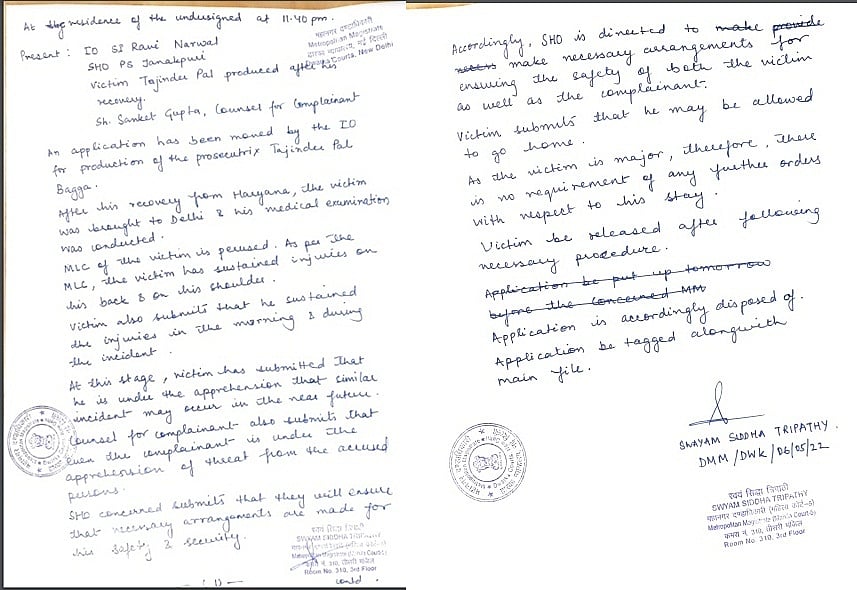 At residence of the undersigned at 11.40 pm.
महानगर दण्डाधिकारी
Metropolitan Magistrate
Dwarka Courts, New Delhi
Present : IO SI Ravi Narwal
SHO PS Janakpuri
Victim Tajinder Pal produced after his
recovery.
Sh. Sanket Gupta, Counsel for Complainant
An application has been moved by the IO
for production of the prosecutrix Tajinder Pal
Bagga.
After his recovery from Haryana, the victim
was brought to Delhi & his medical examination
was conducted.
MLC of the victim is perused. As per the
MLC, the victim has sustained injuries on
his back & on his shoulder.
Victim also submits that he sustained
the injuries in the morning & during
the incident.
At this stage, victim has submitted that
he is under the apprehension that similar
incident may occur in the near future.
Counsel for complainant also submits that
even the complainant is under the
apprehension of threat from the accused
persons.
SHO concerned submits that they will ensure
that necessary arrangements are made for
his safety & security.
स्वयं सिद्धा त्रिपाठी
SWYAM SIDDHA TRIPATHY
Metropolitan Magistrate (Mahila Court)
Room No. 310, 3rd Floor
—(1)—
contd.
Accordingly, SHO is directed to make provide
necess make necessary arrangements for
ensuring the safety of both the victim
as well as the complainant.
Victim submits that he may be allowed
to go home.
As the victim is major, therefore, there
is no requirement of any further orders
with respect to his stay.
Victim be released after following
necessary procedure.
Application be put up tomorrow
before the concerned MM
Application is accordingly disposed of.
Application be tagged alongwith
main file.
SWAYAM SIDDHA TRIPATHY
DMM/DWK/06/05/22
स्वयं सिद्धा त्रिपाठी
SWYAM SIDDHA TRIPATHY
महानगर दण्डाधिकारी (महिला कोर्ट)
Metropolitan Magistrate (Mahila Court)
कमरा नं. 310, तीसरी मंजिल
Room No. 310, 3rd Floor